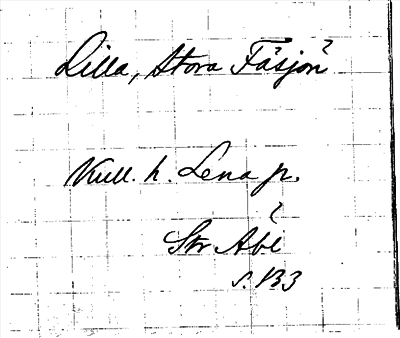 Lilla, Stora Fåsjön
Kull. h. Lena p.
Str Åbi
s. 133